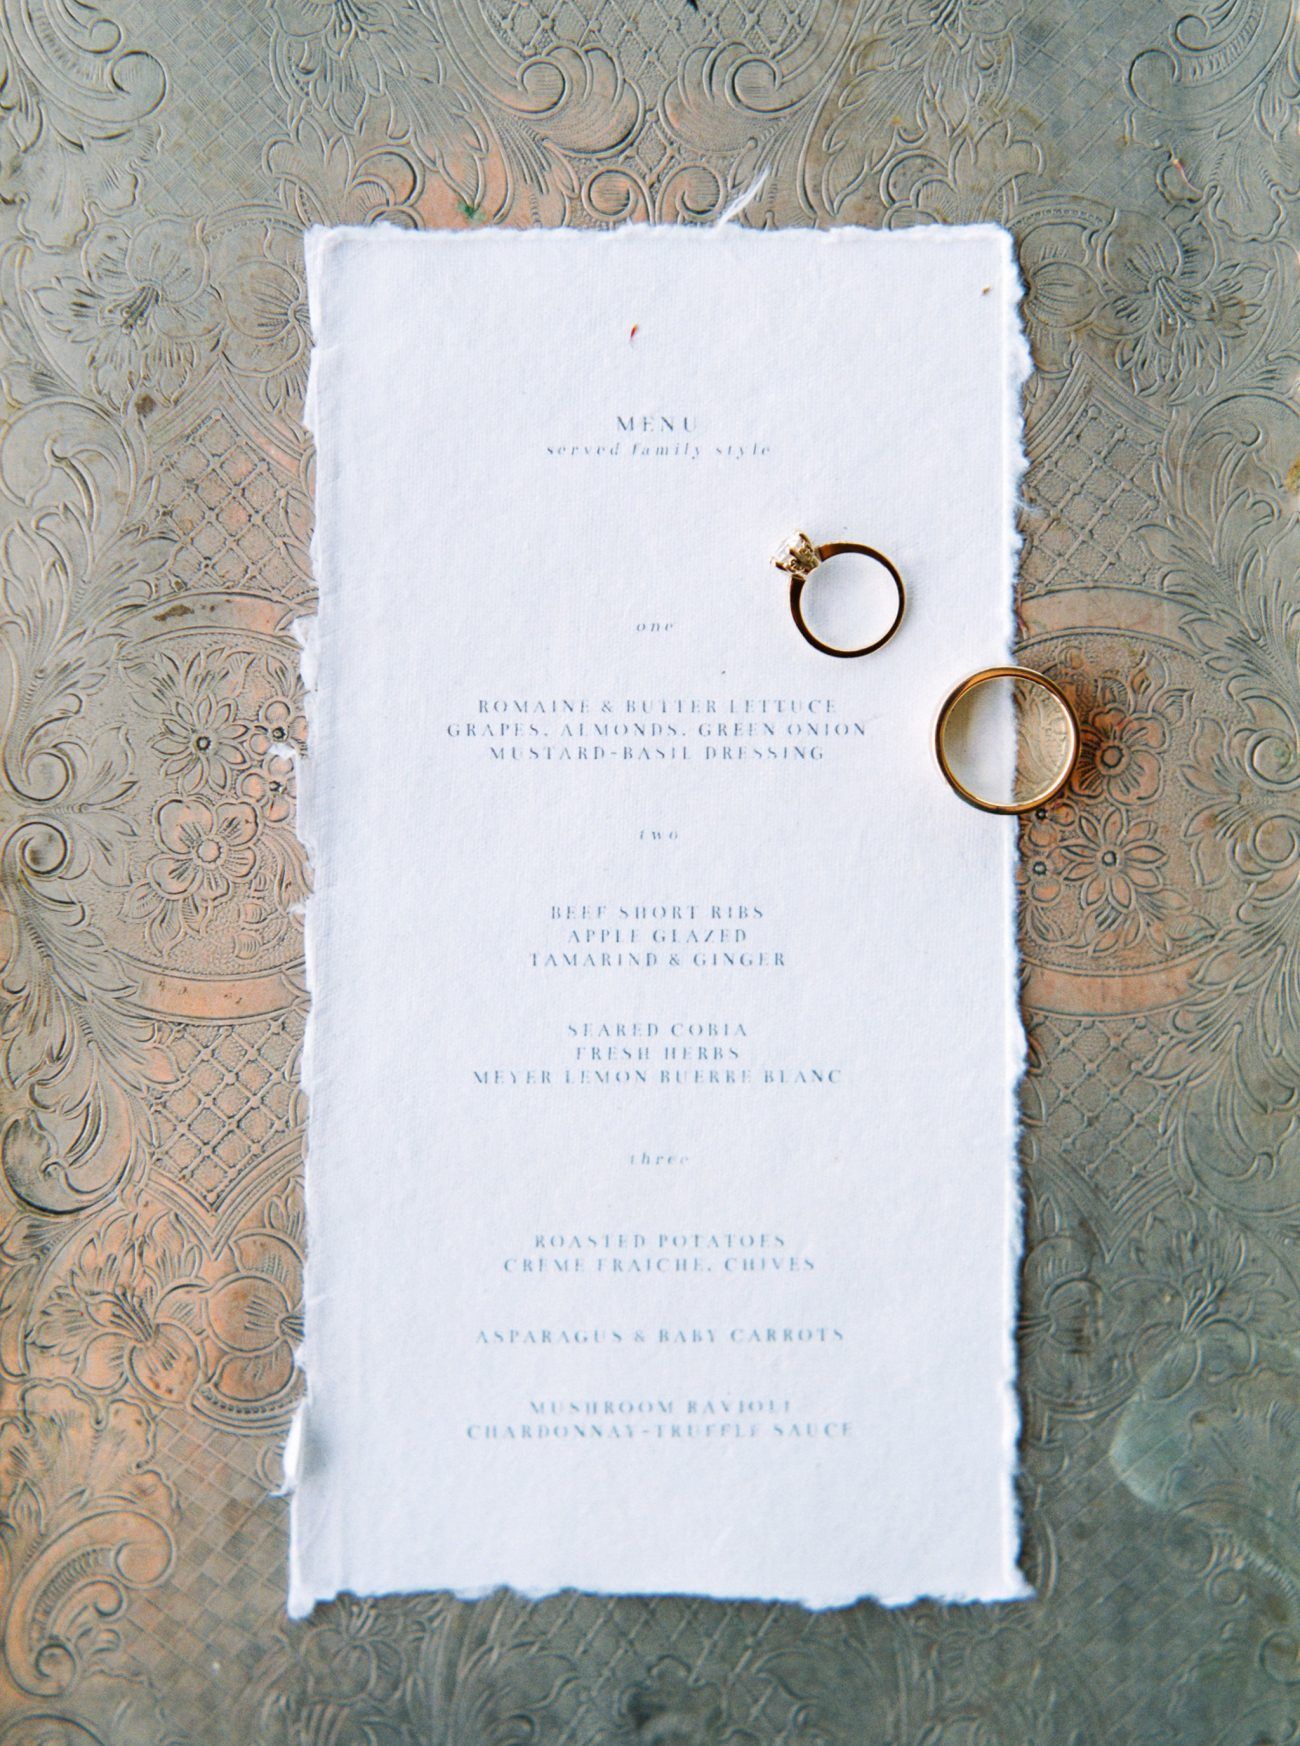 MENU
served family style
one
ROMAINE & BUTTER LETTUCE
GRAPES, ALMONDS, GREEN ONION
MUSTARD-BASIL DRESSING
two
BEEF SHORT RIBS
APPLE GLAZED
TAMARIND & GINGER
SEARED COBIA
FRESH HERBS
MEYER LEMON BUERRE BLANC
three
ROASTED POTATOES
CRÈME FRAICHE, CHIVES
ASPARAGUS & BABY CARROTS
MUSHROOM RAVIOLI
CHARDONNAY-TRUFFLE SAUCE